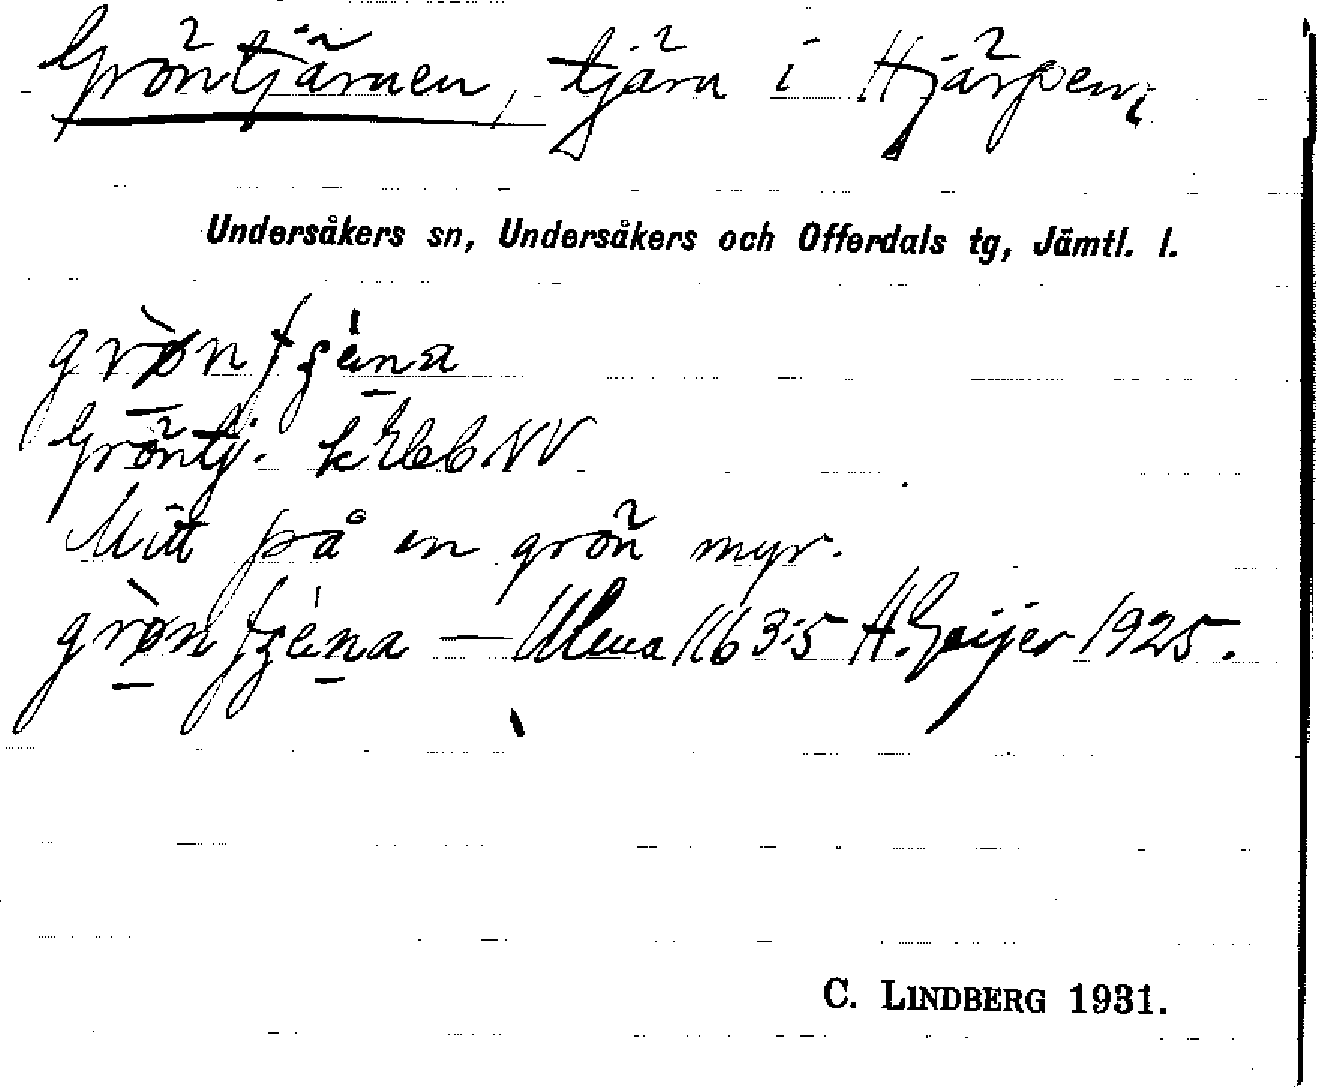 Gröntjärnen, tjärn i Hjärpen,
Undersåkers sn, Undersåkers och Offerdals tg, Jämtl. l.
Gröntj.
Mitt på en grön myr.
— Ulma 1163:5 H. Geijer 1925.
C. LINDBERG 1931.